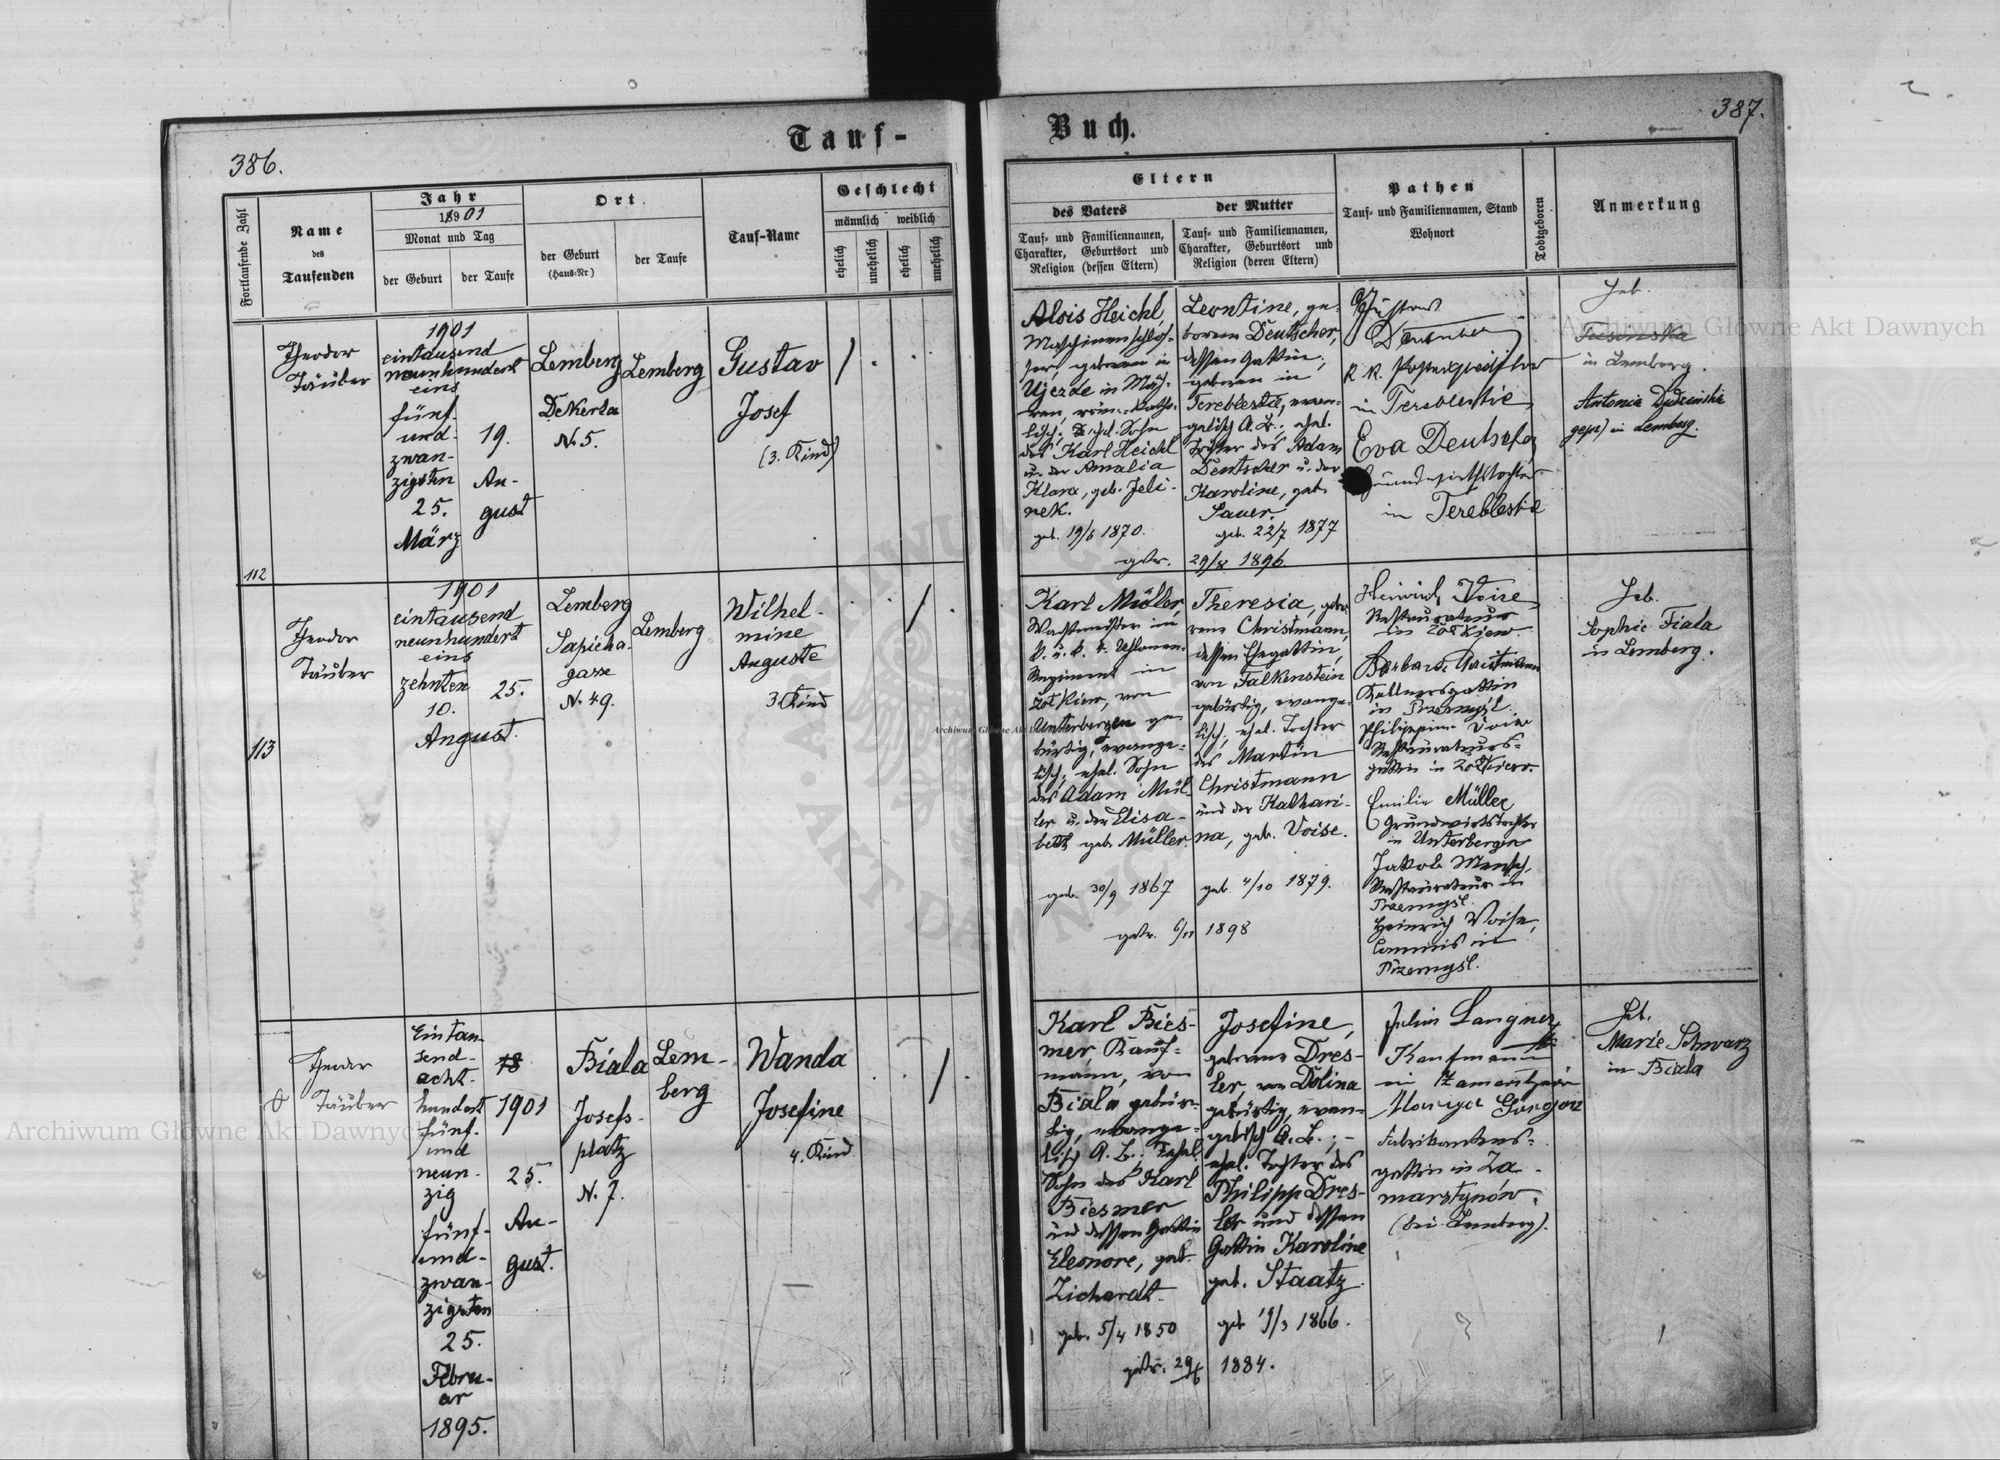 386.
Tauf-
Fortlaufende Zahl
Name
des
Taufenden
Jahr
1901
Monat und Tag
der Geburt
der Taufe
Ort.
der Geburt
(Haus-Nr)
der Taufe
Tauf-Name
Geschlecht
männlich
weiblich
ehelich
unehelich
ehelich
unehelich
112
Theodor
Täuber
1901
eintausend
neunhundert
eins
fünf-
und-
zwan-
zigsten
25.
März
19.
Au-
gust
Lemberg
Dekerta
N. 5.
Lemberg
Gustav
Josef
(3. Kind)
/
113
Theodor
Täuber
1901
eintausend
neunhundert
eins
zehnten
10.
August.
25.
Lemberg
Sapieha-
gasse
N. 49.
Lemberg
Wilhel-
mine
Auguste
3 Kind
/
Theodor
Täuber
Eintau-
send-
acht-
hundert
fünf-
und
neun-
zig
fünf-
und-
zwan-
zigsten
25.
Febru-
ar
1895.
18
1901
25.
Au-
gust.
Biala
Josefs-
platz
N. 7.
Lem-
berg
Wanda
Josefine
4. Kind
/
387.
Buch.
Eltern
des Vaters
Tauf- und Familiennamen,
Charakter, Geburtsort und
Religion (dessen Eltern)
der Mutter
Tauf- und Familiennamen,
Charakter, Geburtsort und
Religion (deren Eltern)
Pathen
Tauf- und Familiennamen, Stand
Wohnort
Todtgeboren
Anmerkung
Alois Heichl
Maschinenschlos-
ser, geboren in
Ujezde in Mäh-
ren, röm.-katho-
lisch; ehel. Sohn
des Karl Heichl
u. der Amalia
Klara, geb. Jeli-
nek.
geb. 19/6 1870.
getr.
Leontine, ge-
borene Deutscher,
dessen Gattin;
geboren in
Tereblestie, evan-
gelisch A. B.; ehel.
Tochter des Adam
Deutscher u. der
Karoline, geb.
Sauer.
geb. 22/7 1877
29/8 1896
Gustav
k. k. Postexpeditor
in Tereblestie,
Eva Deutscher
Grundwirthstochter
in Tereblestie
Heb.
in Lemberg.
Antonie
gepr) in Lemberg.
Karl Müller,
Wachtmeister im
k. u. k. 4. Uhlanen-
Regiment in
Zółkiew, von
Unterbergen ge-
bürtig, evange-
lisch; ehel. Sohn
des Adam Mül-
ler u. der Elisa-
beth geb. Müller.
geb. 30/9 1867
getr. 6/11
Theresia, gebo-
rene Christmann,
dessen Ehegattin,
von Falkenstein
gebürtig, evange-
lisch; ehel. Tochter
des Martin
Christmann
und der Kathari-
na, geb. Voise.
geb. 4/10 1879.
1898
Heinrich Voise,
Restaurateur
in Zółkiew.
Barbara Christmann
Kellnersgattin
in Przemyśl.
Philippine Voise
Restaurateurs-
gattin in Zółkiew.
Emilie Müller
Grundwirtstochter
in Unterbergen
Jakob Mensch,
Restaurateur in
Przemyśl.
Heinrich Voise,
Commis in
Przemysl.
Heb.
Sophie Fiala
in Lemberg.
Karl Bies-
mer, Kauf-
mann, von
Biala gebür-
tig, evange-
lisch A. B.; ehel.
Sohn des Karl
Biesmer
und dessen Gattin
Eleonore, geb.
Zichardt.
geb. 5/4 1850
getr. 29/6
Josefine,
geborene Dres-
ler, von Dolina
gebürtig, evan-
gelisch A. B.; -
ehel. Tochter des
Philipp Dres-
ler und dessen
Gattin Karoline
geb. Staatz.
geb 19/3 1866.
1884.
Julius Langner,
Kaufmann
in Zamarstynów
Fabrikantens-
gattin in Za-
marstynów.
(bei Lemberg).
Heb.
Marie Schwarz
in Biala
Archiwum Główne Akt Dawnych
Archiwum Główne Akt Dawnych
Archiwum Główne Akt Dawnych